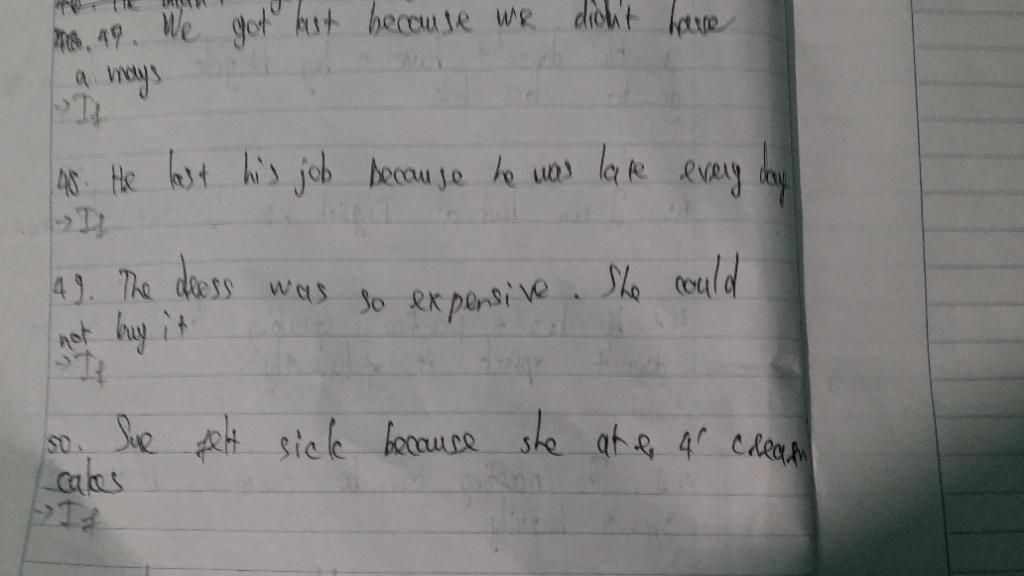 49. We got last because we didn't have
a mays
→ If
48. He lost his job because he was late every day
→ If
49. The dress was so expensive. She could
not buy it
→ If
50. Sue felt sick because she ate 4 cream
cakes
→ If